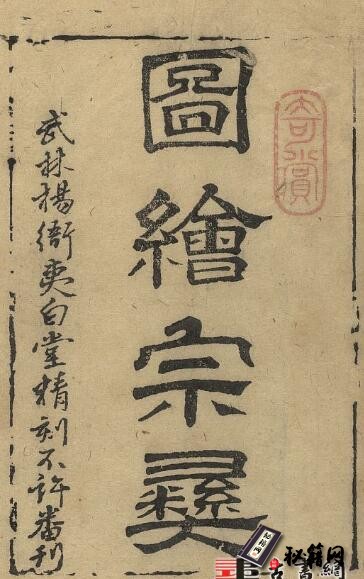 圖繪宗彝
武林楊衙夷白堂精刻不許番刊
奇賞
秘籍网